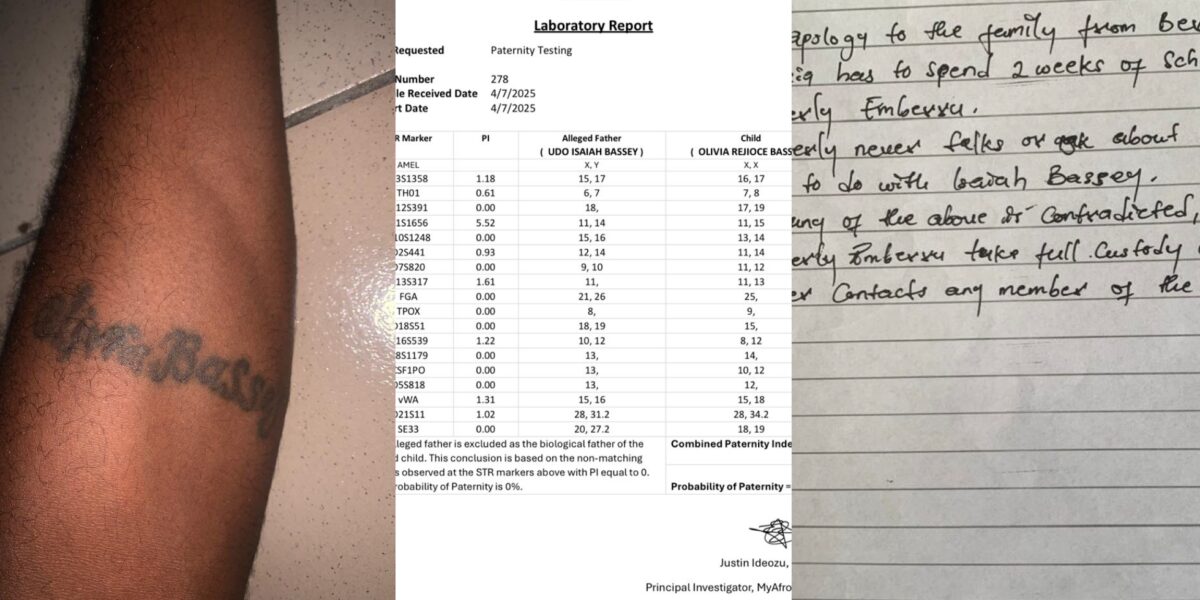 Olivia Bassey
Laboratory Report
Requested Paternity Testing
Number 278
le Received Date 4/7/2025
rt Date 4/7/2025
R Marker PI Alleged Father Child
( UDO ISAIAH BASSEY ) ( OLIVIA REJIOCE BASS
AMEL X, Y X, X
3S1358 1.18 15, 17 16, 17
TH01 0.61 6, 7 7, 8
12S391 0.00 18, 17, 19
1S1656 5.52 11, 14 11, 15
10S1248 0.00 15, 16 13, 14
D2S441 0.93 12, 14 11, 14
D7S820 0.00 9, 10 11, 12
13S317 1.61 11, 11, 13
FGA 0.00 21, 26 25,
TPOX 0.00 8, 9,
D18S51 0.00 18, 19 15,
16S539 1.22 10, 12 8, 12
8S1179 0.00 13, 14,
CSF1PO 0.00 13, 10, 12
D5S818 0.00 13, 12,
vWA 1.31 15, 16 15, 18
D21S11 1.02 28, 31.2 28, 34.2
SE33 0.00 20, 27.2 18, 19
lleged father is excluded as the biological father of the
d child. This conclusion is based on the non-matching
s observed at the STR markers above with PI equal to 0.
robability of Paternity is 0%.
Combined Paternity Inde
Probability of Paternity =
Justin Ideozu,
Principal Investigator, MyAfro
apology to the family from Bev
has to spend 2 weeks of Sch
erly Emberru.
erly never talks or about
to do with Isaiah Bassey.
of the above is Contradicted,
erly Emberru take full Custody
er Contacts any member of the